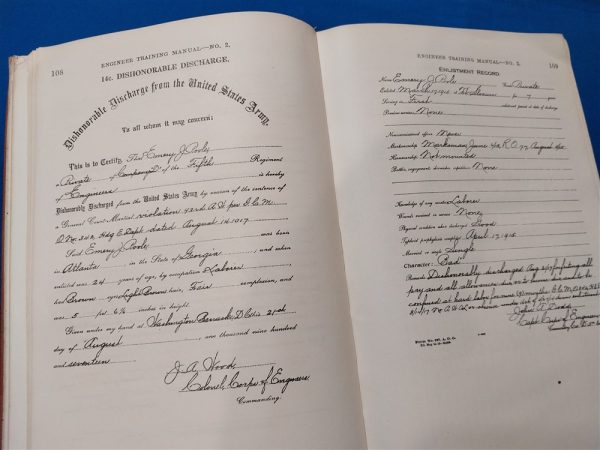 108
ENGINEER TRAINING MANUAL—NO. 2.
14c. DISHONORABLE DISCHARGE.
Dishonorable Discharge from the United States Army.
To all whom it may concern:
This is to Certify, That Emery J. Poole
a Private of Company of the Fifth Regiment
of Engineers is hereby
Dishonorably Discharged from the United States Army by reason of the sentence of
a General Court-Martial violation 42rd A.W. par G.C.M.
O. No. Hdq E. Dept. dated August 14, 1917
Said Emery J. Poole was born
in Atlanta in the State of Georgia, and when
enlisted was 24 years of age, by occupation a Laborer
had Brown eyes, Light Brown hair, Fair complexion, and
was 5 feet 6¾ inches in height.
Given under my hand at Washington Barracks, D.C. this 21st
day of August, one thousand nine hundred
and seventeen
J. A. Woods
Colonel, Corps of Engineers
Commanding.
ENGINEER TRAINING MANUAL—NO. 2.
109
ENLISTMENT RECORD.
Name Emery J. Poole Grade Private
Enlisted March 17, 1915 at Ft. for 7 years
Serving in First enlistment period at date of discharge
Previous service: None
Noncommissioned officer: Never
Marksmanship: Marksman, June R.O. 72 August
Horsemanship: Not mounted
Battles, engagements, skirmishes, expeditions: None
Knowledge of any vocation: Laborer
Wounds received in service: None
Physical condition when discharged: Good
Typhoid prophylaxis completed April 17, 1915
Married or single: Single
Character: Bad
Remarks: Dishonorably discharged Aug. forfeiting all
pay and all allowances due or to become due to be
confined at hard labor for
Capt. Corps of Engineers